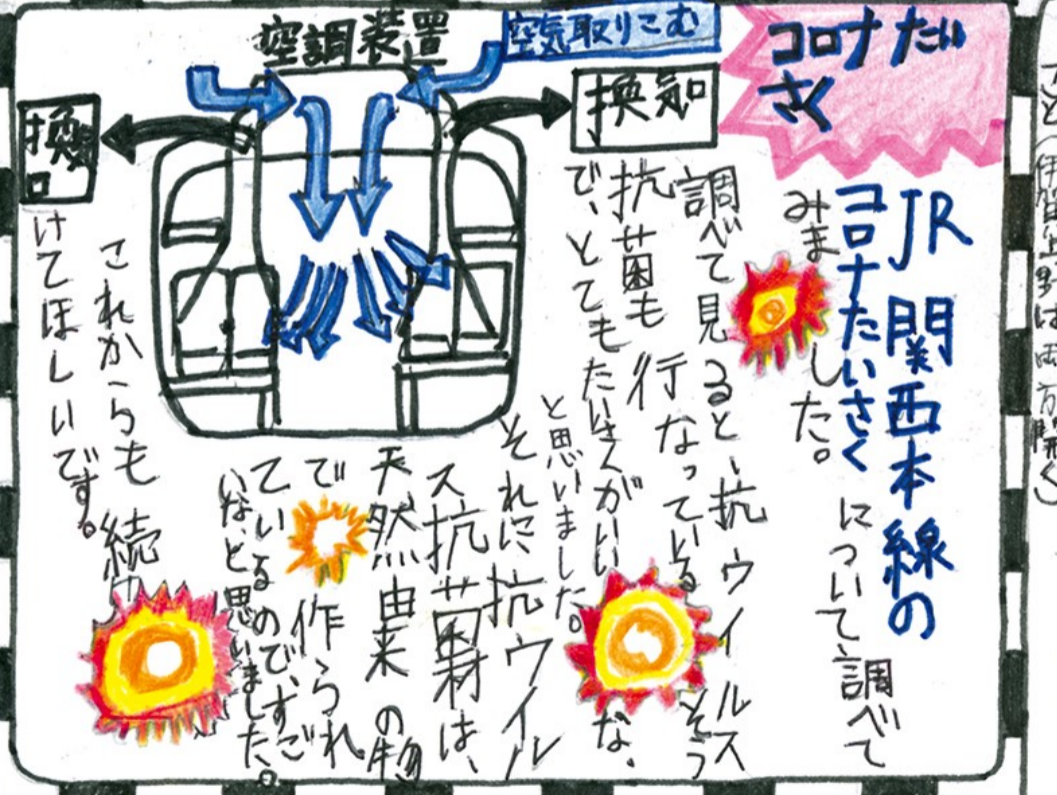 コロナたい
さく
空気取りこむ
空調装置
換気
換気
口
JR 関西本線の
コロナたいさく について、調べて
みました。
調べて見ると、抗ウイルス
抗菌も 行なっているそう
で、とてもたいさくがいいな、
と思いました。
それに抗ウイル
ス抗菌材は、
天然由来の物
で 作られ
ているので、すご
いな、と思いました。
これからも 続
けてほしいです。